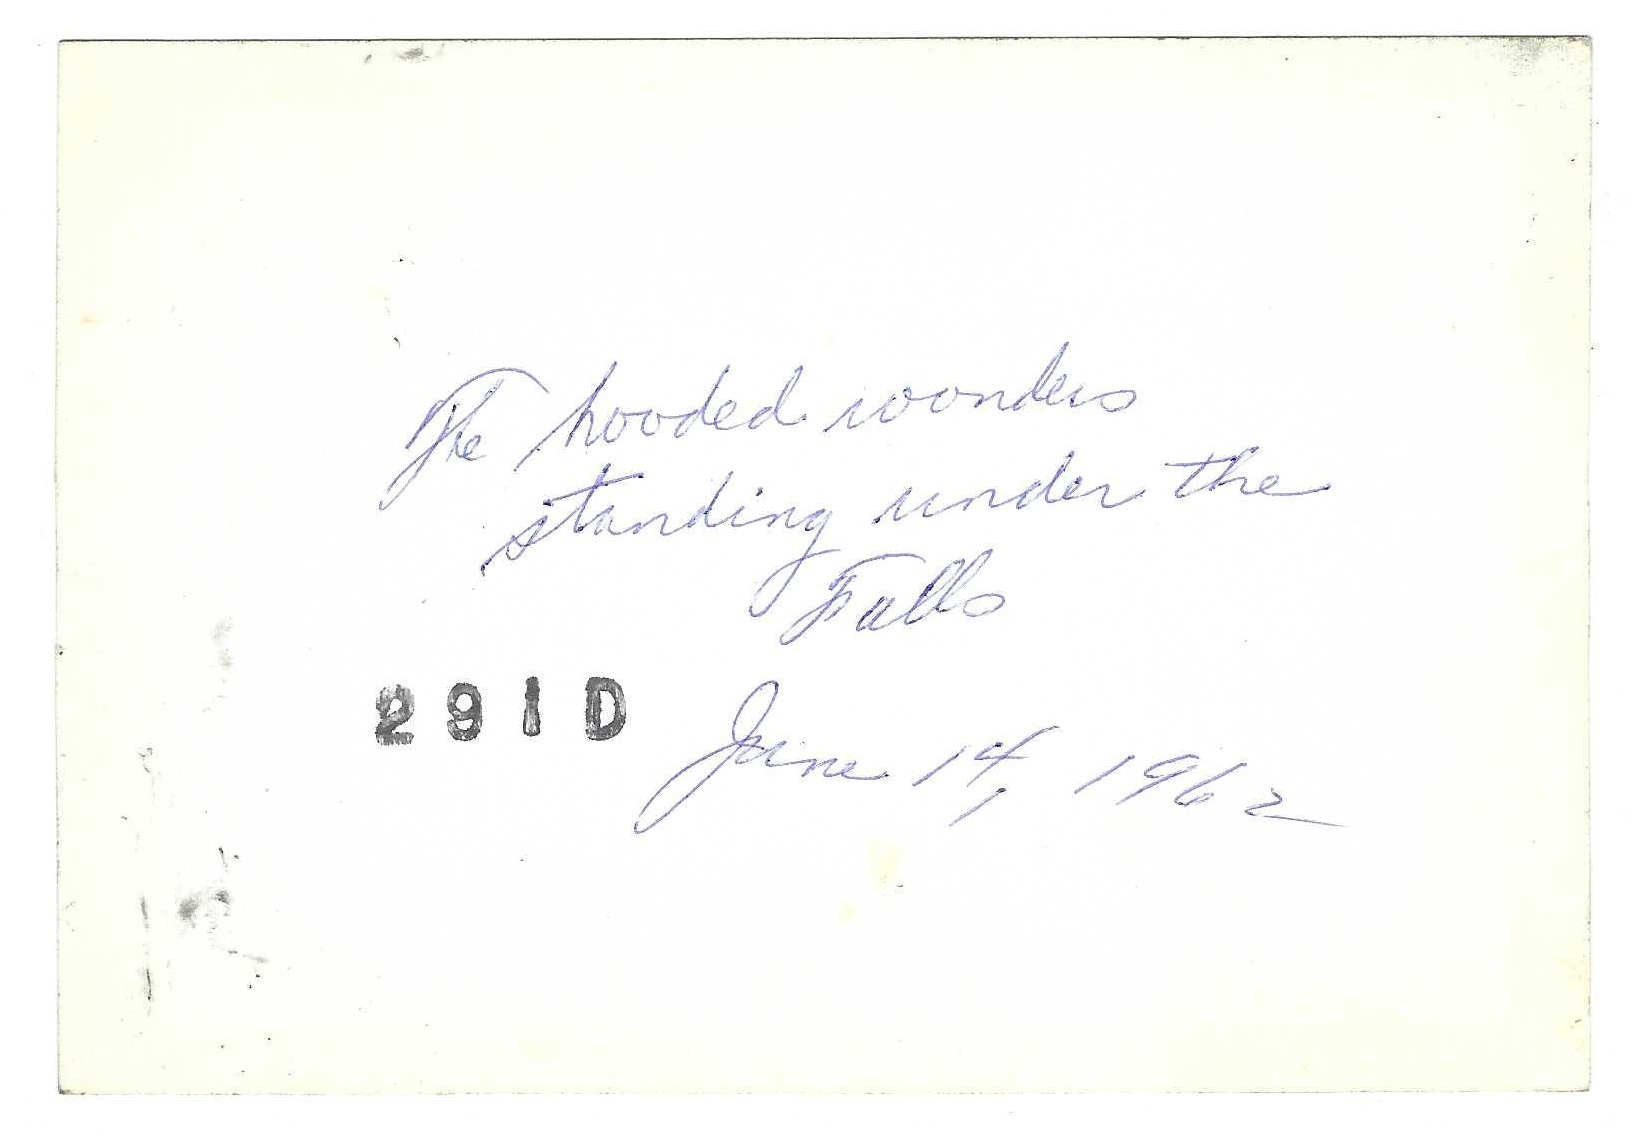 The hooded wonders
standing under the
Falls
291D
June 14, 1962